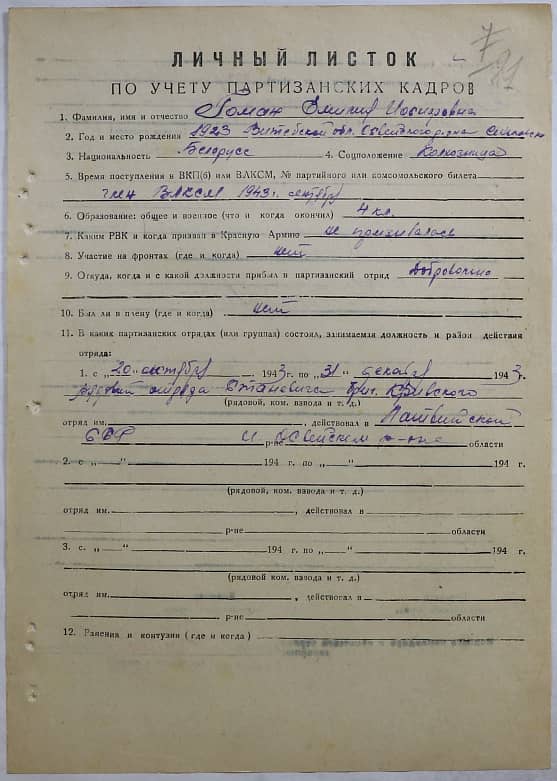 7
81
ЛИЧНЫЙ ЛИСТОК
ПО УЧЕТУ ПАРТИЗАНСКИХ КАДРОВ
1. Фамилия, имя и отчество Гоман Осиповна
2. Год и место рождения 1923 Витебской обл. Освейского района
3. Национальность Белорусс 4. Соцположение Колхозница
5. Время поступления в ВКП(б) или ВЛКСМ, № партийного или комсомольского билета
член ВЛКСМ 1943 г. сентябрь
6. Образование: общее и военное (что и когда окончил) 4 кл.
7. Каким РВК и когда призван в Красную Армию не призывалась
8. Участие на фронтах (где и когда) нет
9. Откуда, когда и с какой должности прибыл в партизанский отряд Добровольно
10. Был ли в плену (где и когда) нет
11. В каких партизанских отрядах (или группах) состоял, занимаемая должность и район действия
отряда:
1. с „20" октября 1943 г. по „31" декабря 1943 г.
рядовой отряда Станевича бриг.
(рядовой, ком. взвода и т. д.)
отряд им. , действовал в Латвийской
ССР и Освейском р-оне
р-не области
2. с „ " 194 г. по „ " 194 г.
(рядовой, ком. взвода и т. д.)
отряд им. , действовал в
р-не области
3. с. „ " 194 г. по „ " 194 г.
(рядовой ком. взвода и т. д.)
отряд им. , действовал в
р-не области
12. Ранения и контузии (где и когда)